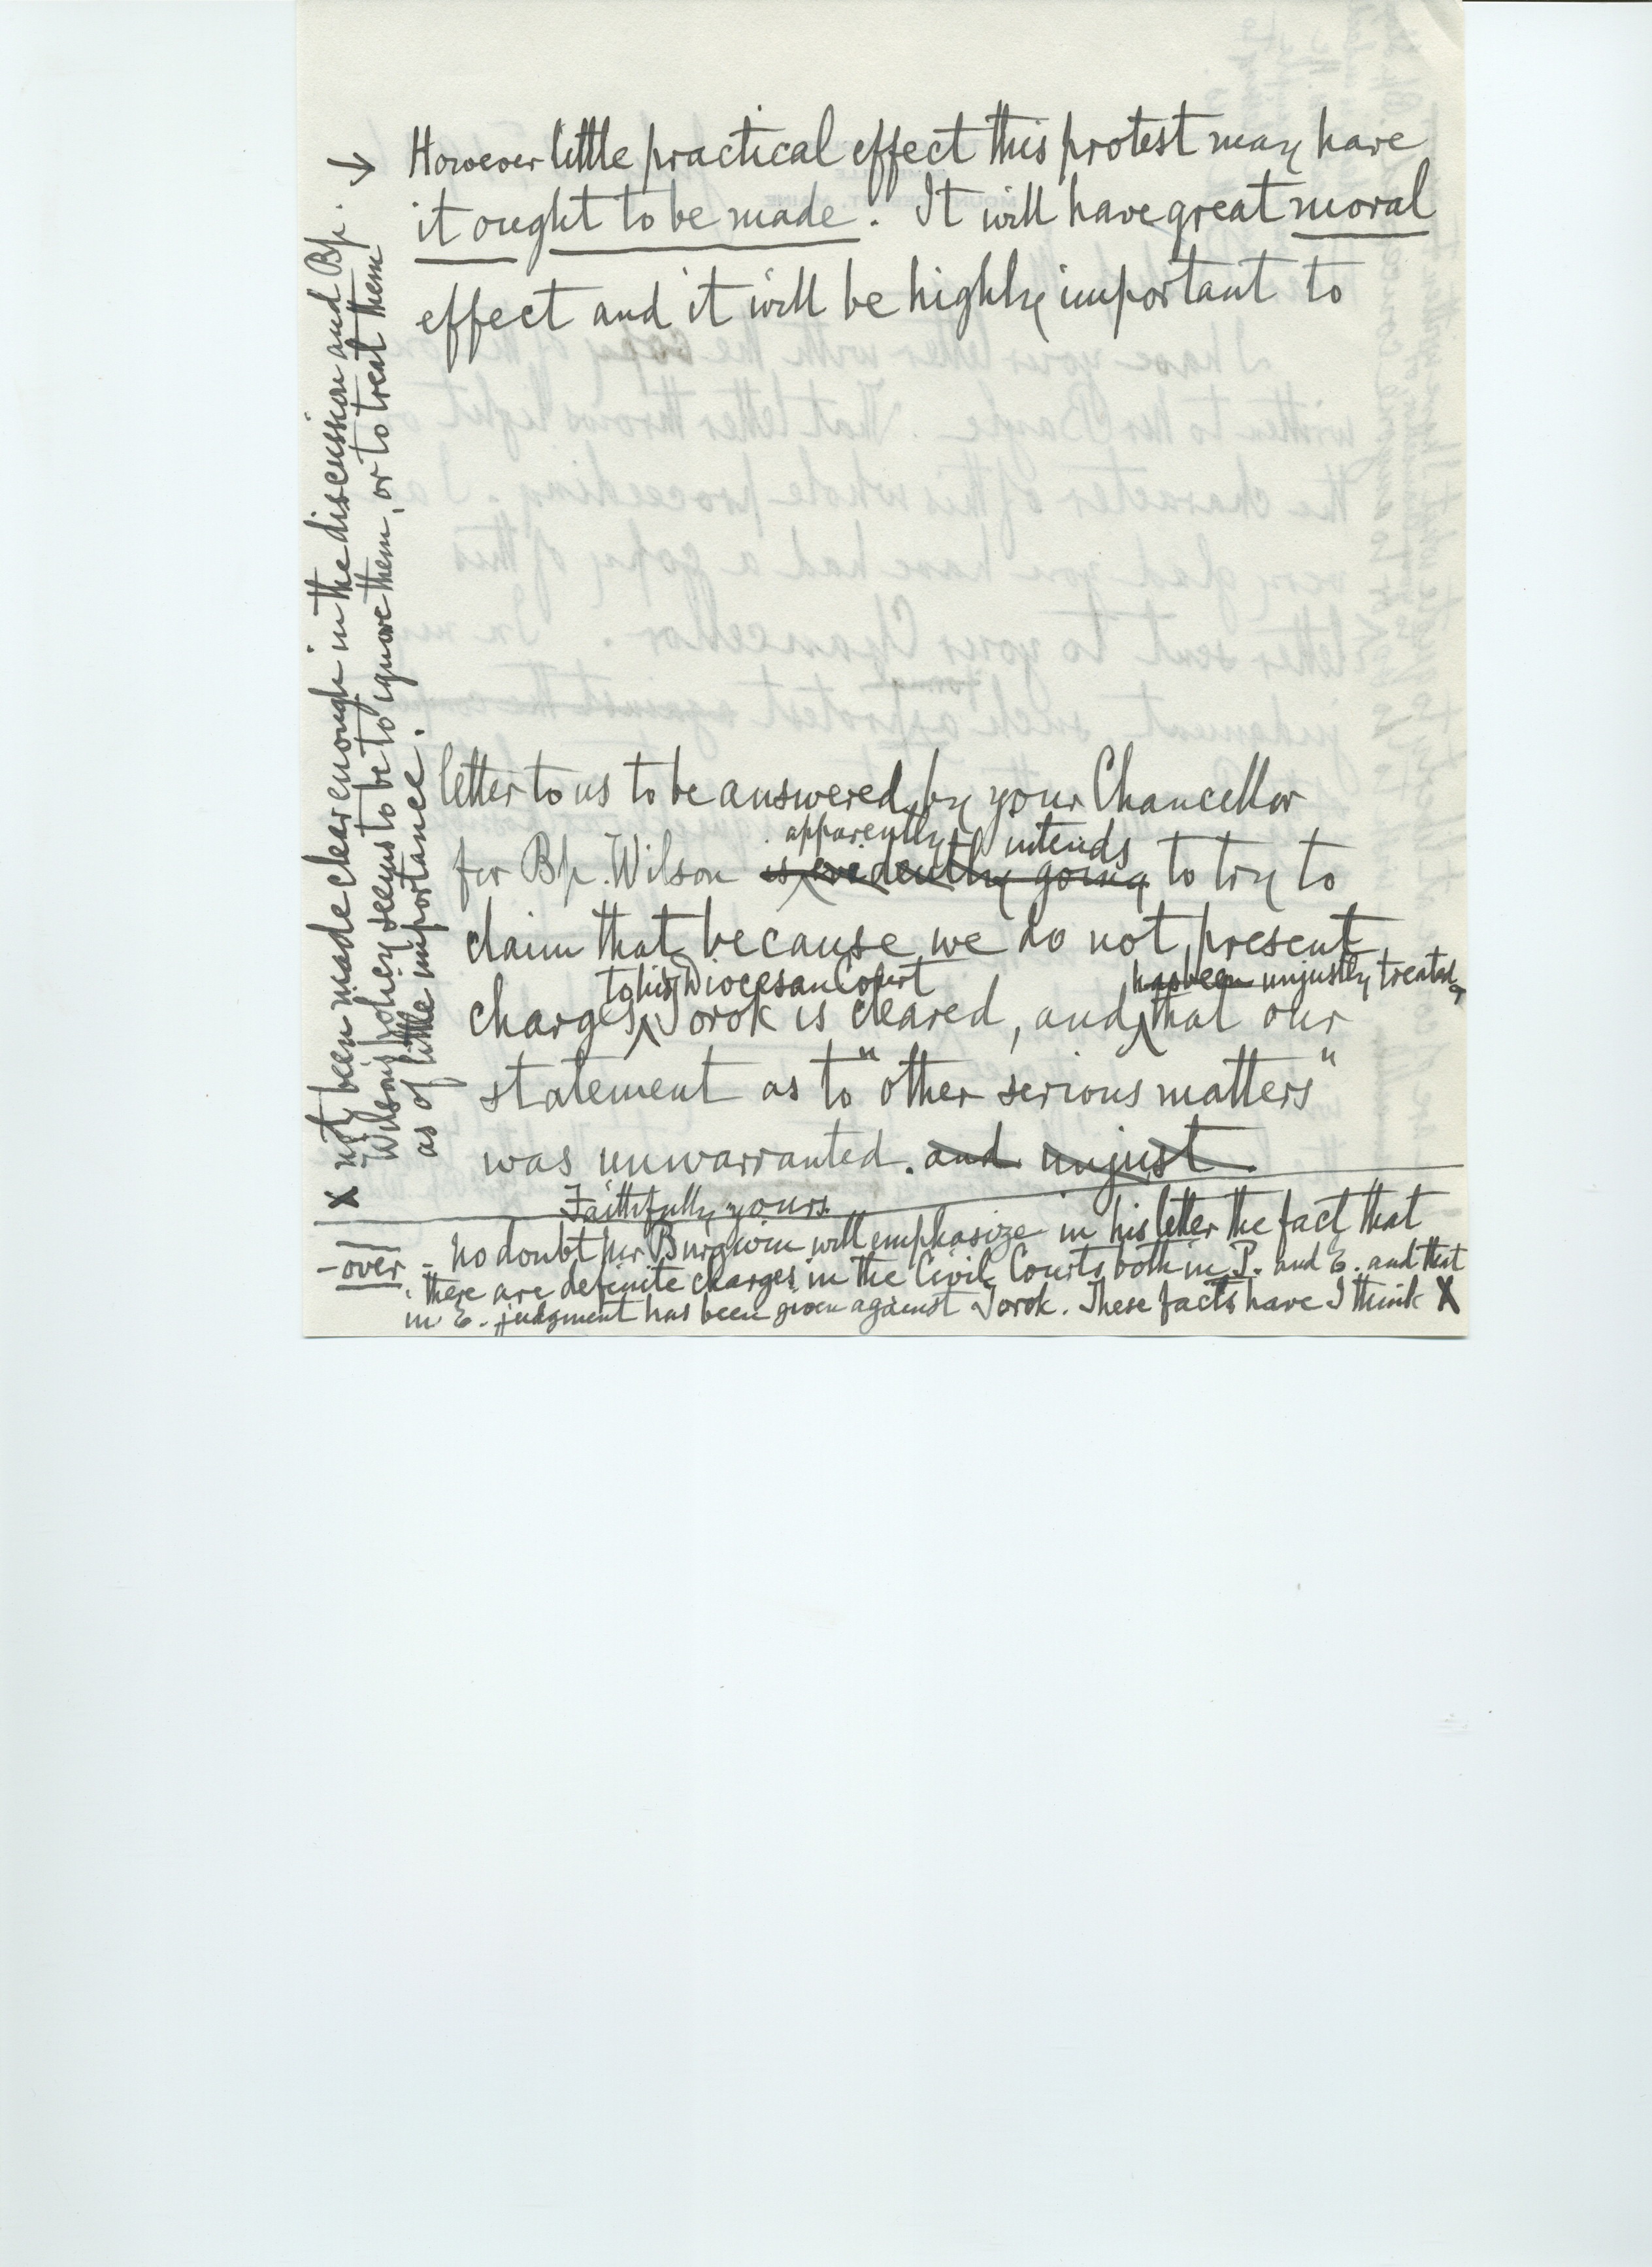 → However little practical effect this protest may have
it ought to be made. It will have great moral
effect and it will be highly important to
letter to us to be answered by your Chancellor
apparently intends
for Bp. Wilson is evidently going to try to
claim that because we do not present
to his Diocesan Court has been unjustly treated,
charges Torok is cleared, and that our
statement as to "other serious matters"
was unwarranted. and unjust.
Faithfully yours.
-over- No doubt Mr Burgwin will emphasize in his letter the fact that
there are definite charges in the Civil Courts both in P. and E. and that
in E. judgment has been given against Torok. These facts have I think X
X not been made clear enough in the discussion and Bp.
Wilson's policy seems to be to ignore them, or to treat them
as of little importance.